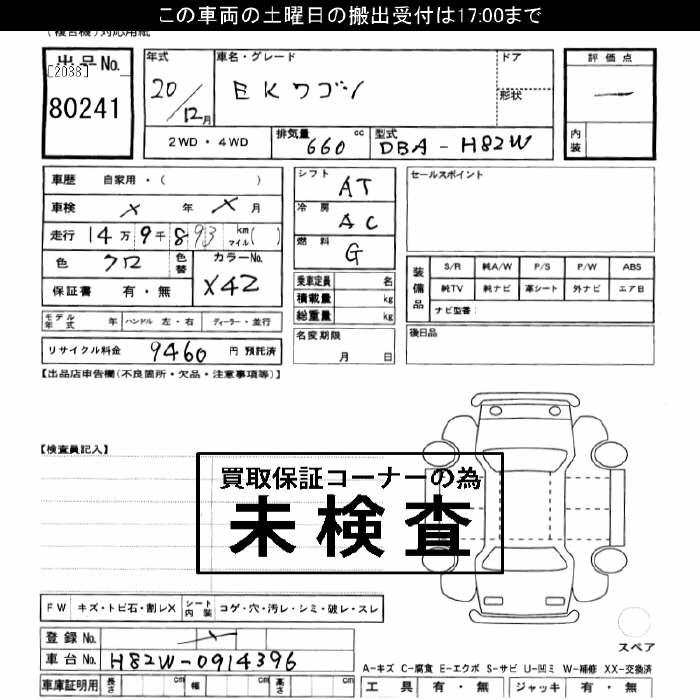 この車両の土曜日の搬出受付は17:00まで
(複合機)対応用紙
出品No.
[2038]
80241
年式
20/12月
車名・グレード
EKワゴン
ドア
形状
評価点
―
内装
2WD・4WD
排気量 660 cc
型式 DBA-H82W
車歴 自家用・( )
車検 × 年 × 月
走行 14万9千893 km マイル( )
色 クロ
色替
カラーNo. X42
保証書 有・無
モデル年式 年 ハンドル 左・右 ディーラー・並行
リサイクル料金 9460 円 預託済
シフト AT
冷房 AC
燃料 G
乗車定員 名
積載量 kg
総重量 kg
名変期限
月 日
セールスポイント
装備品
S/R 純A/W P/S P/W ABS
純TV 純ナビ 革シート 外ナビ エアB
ナビ型番:
後日品
【出品店申告欄(不良箇所・欠品・注意事項等)】
【検査員記入】
買取保証コーナーの為
未検査
FW キズ・トビ石・割レX シート内装 コゲ・穴・汚レ・シミ・破レ・スレ
登録No. ×
車台No. H82W-0914396
車庫証明用 長さ cm 幅 cm 高さ cm
スペア
A-キズ C-腐食 E-エクボ S-サビ U-凹ミ W-補修 XX-交換済
工具 有・無 ジャッキ 有・無